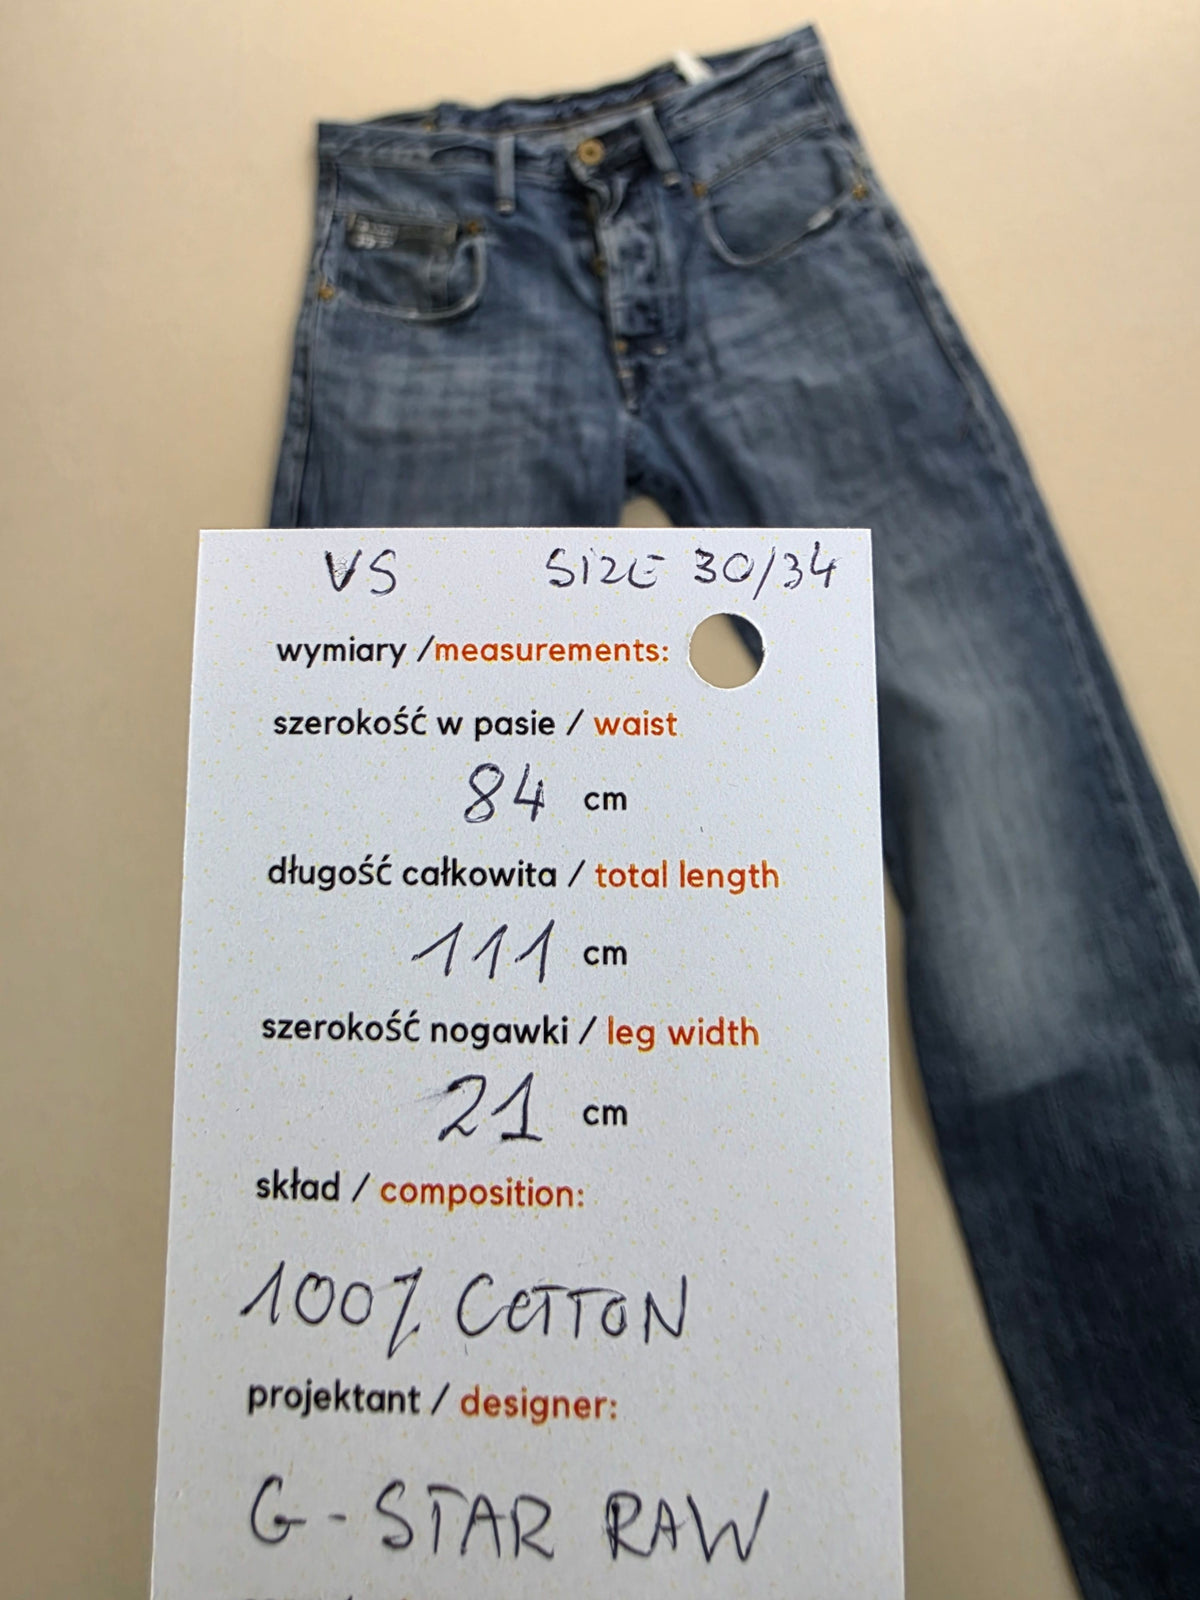 VS SIZE 30/34
wymiary /measurements:
szerokość w pasie / waist
84 cm
długość całkowita / total length
111 cm
szerokość nogawki / leg width
21 cm
skład / composition:
100% COTTON
projektant / designer:
G-STAR RAW